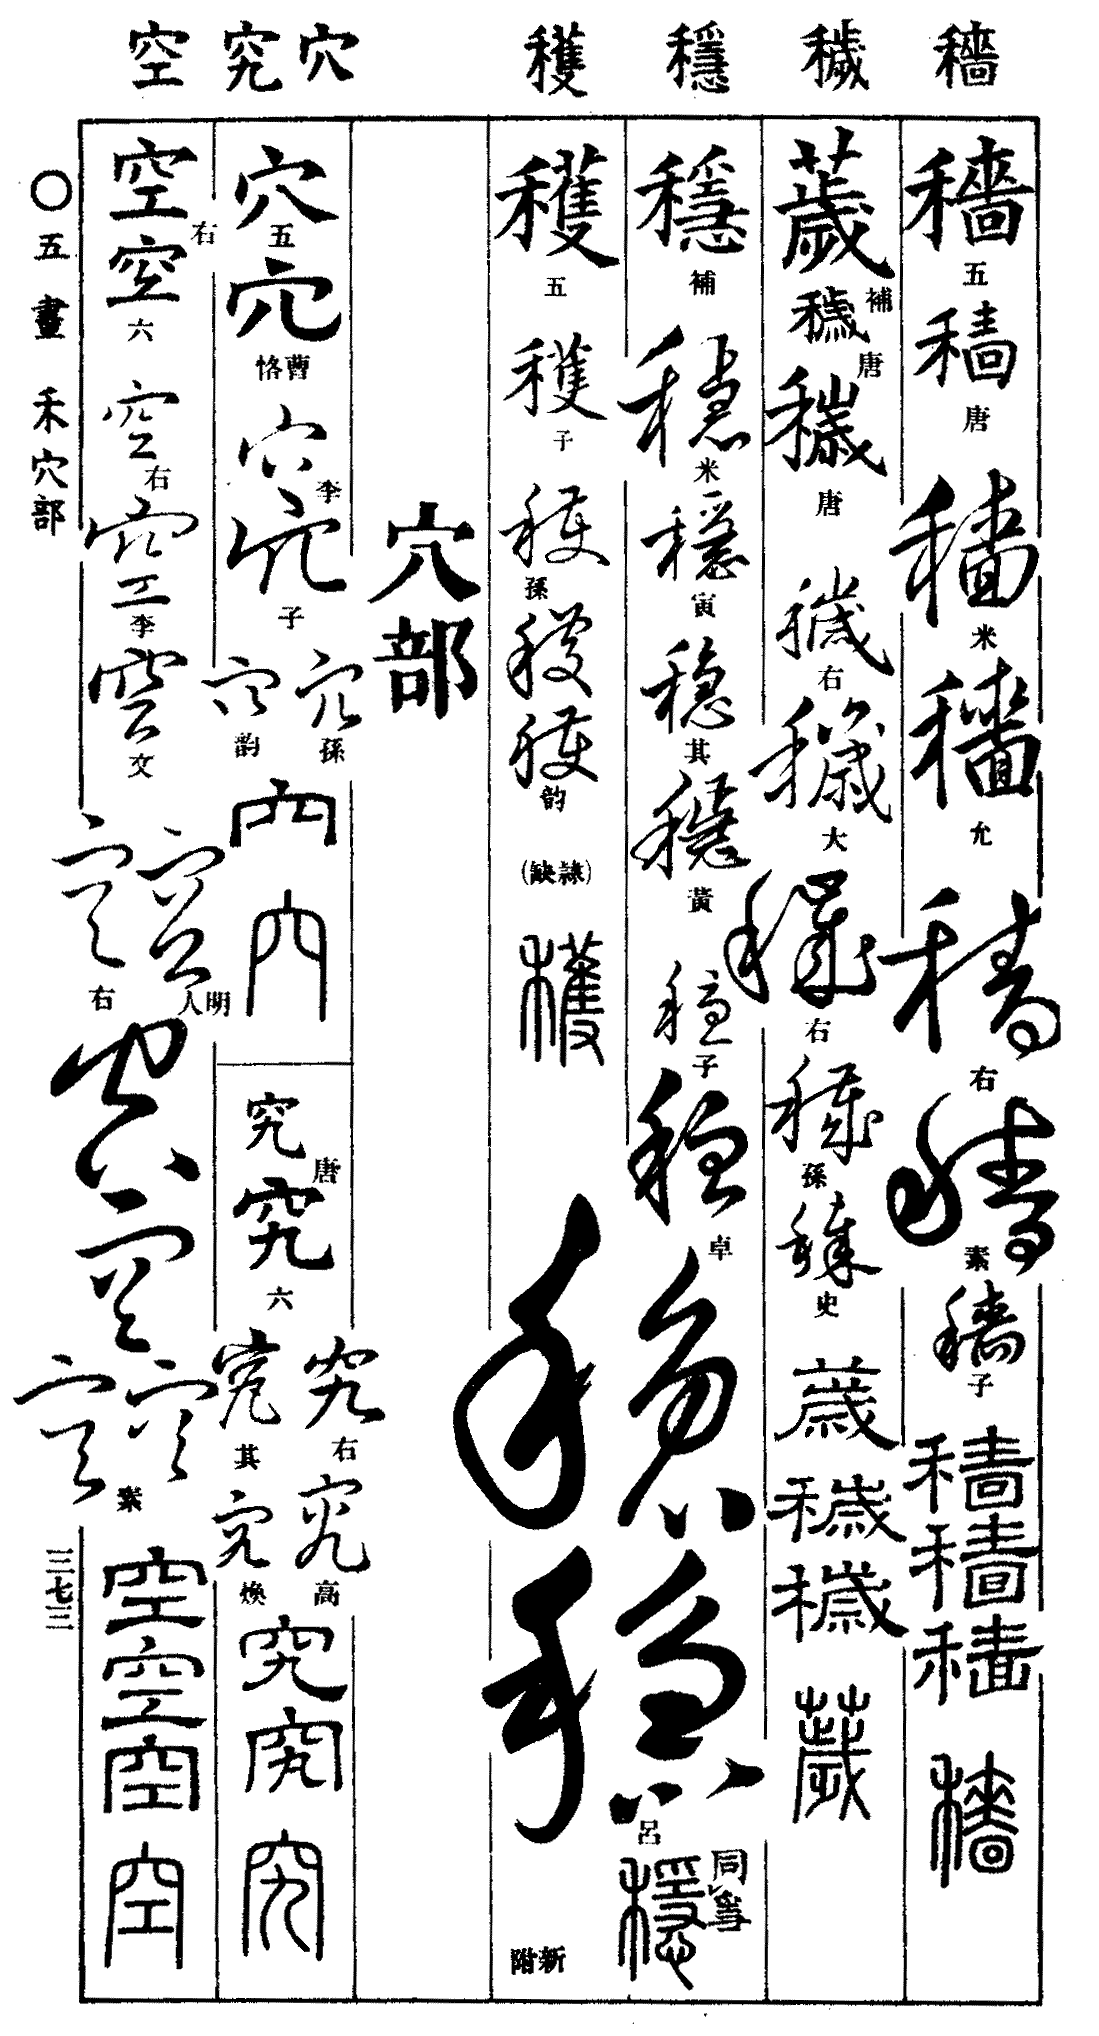 穡 穢 穩 穫 穴 究 空
穡 五 穡 唐 穡 米 穡 允 穡 右 穡 素 穡 子 穡 穡 穡 穡
薉 補 穢 唐 穢 唐 穢 右 穢 大 穢 右 穢 孫 穢 史 薉 穢 穢 薉
穩 補 穩 米 穩 寅 穩 其 穩 黃 穩 子 穩 卓 穩 穩 呂 穩 同雪
穫 五 穫 子 穫 孫 穫 穫 韵 (隸缺) 穫 新附
穴部
穴 五 穴 曹恪 穴 李 穴 子 穴 孫 穴 韵 穴 穴
究 唐 究 六 究 右 究 其 究 高 究 煥 究 究 究
空 右 空 六 空 右 空 李 空 文 空 明人 空 右 空 空 空 空 素 空 空 空 空
〇五畫 禾穴部
三七三